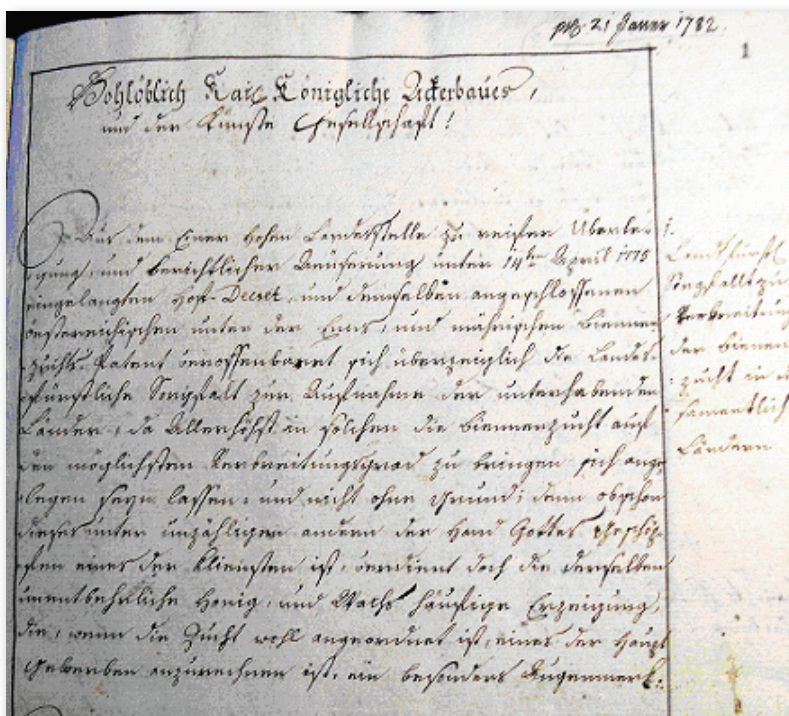 21 Jäner 1782
1
Wohllöblich Kais Königliche Ackerbaues,
und der Künste Gesellschaft!
Aus dem Einer Hohen Landesstelle zu reifer Überle-
gung, und berichtlicher Äusserung unter 14ten April 1775
eingelangten Hof-Decret, und demselben angeschlossenen
oesterreichischen unter der Enns, und mährischen Bienen
zuchts-Patent veroffenbaret sich überzeuglich die Landes-
fürstliche Sorgfalt zur Aufnahme der unterhabenden
Länder, da Allerhöchst in solchen die Bienenzucht auf
den möglichsten Verbreitungsgrad zu bringen sich ange-
legen seyn lassen, und nicht ohne Grund; denn obschon
dieses unter unzähligen andern der Hand Gottes Geschöp-
fen eines der kleinsten ist, verdient doch die derselben
unentbehrliche Honig, und Wachs häufige Erzeigung,
die, wenn die Zucht wohl angeordnet ist, eines der Haupt
Gewerben anzurechnen ist, ein besonders Augenmerk.
1.
Landsfürstl
Sorgfallt zu
Verbreitung
der bienen
zucht in
samentlich
Ländern